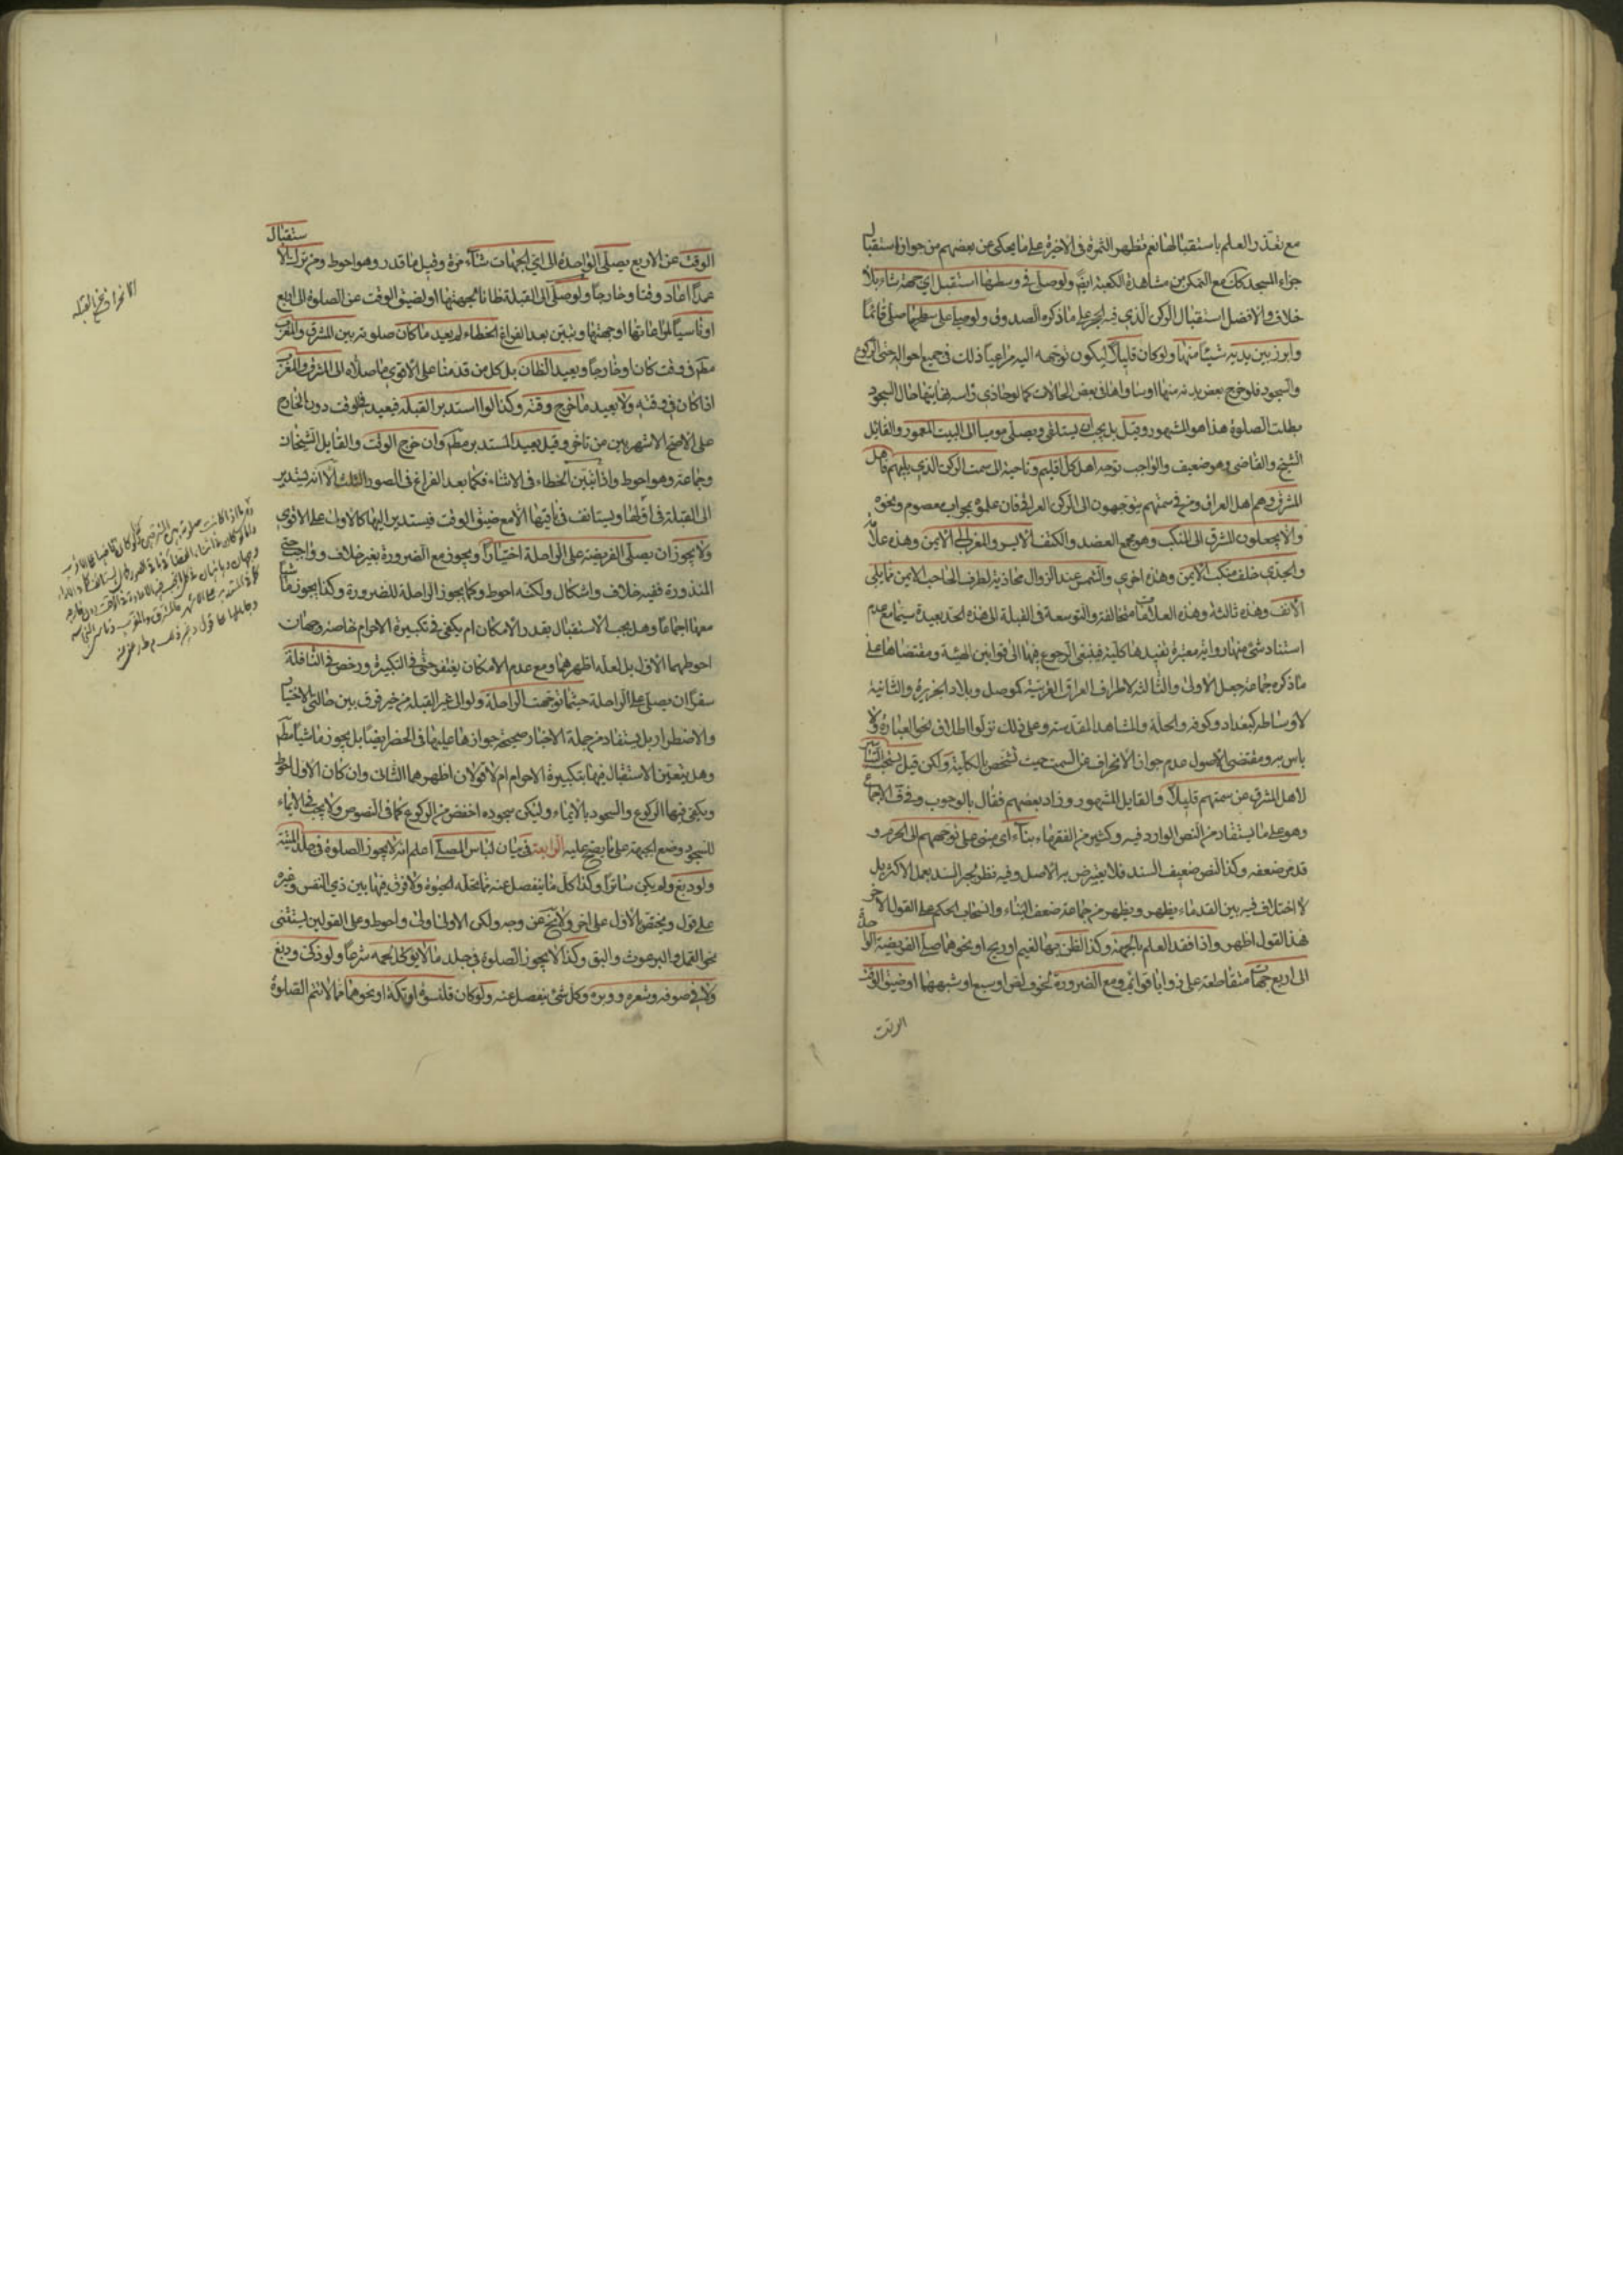 مع تعذر العلم باستقبالها نعم تظهر الثمرة في الاخيرة على ما يحكى عن بعضهم من جواز استقبال
جزاء المسجد كك مع التمكن من مشاهدة الكعبة ايضا ولو صلى في وسطها استقبل اي جهة شاء بلا
خلاف والافضل استقبال الركن الذي فيه الحجر على ما ذكره الصدوق ولو صلى على سطحها صلى قائما
وابرز بين يديه شيئا منها ولو كان قليلا ليكون توجهه اليه مراعيا ذلك في جميع احواله حتى الركوع
والسجود فلو خرج بعض بدنه منها او ساواها في بعض الحالات كما لو حاذى راسه نهايتها حال السجود
بطلت الصلوة هذا هو المشهور وقيل بل يجب ان يستلقي ويصلي موميا الى البيت المعمور والقائل
الشيخ والقاضي وهو ضعيف والواجب توجه اهل كل اقليم وناحية الى سمت الركن الذي يليهم فاهل
المشرق وهم اهل العراق ومن في سمتهم يتوجهون الى الركن العراقي فان علموه بمحراب معصوم ونحوه
والا يجعلون المشرق الى المنكب وهو مجمع العضد والكتف الايسر والمغرب الى الايمن وهذه علامة
والجدي خلف منكب الايمن وهذه اخرى والشمس عند الزوال محاذية لطرف الحاجب الايمن مما يلي
الانف وهذه ثالثة وهذه العلامات متخالفة والتوسعة في القبلة الى هذه الحد بعيدة سيما مع عدم
استناد شئ منها رواية معتبرة تفيدها كلية فينبغي الرجوع فيها الى قوانين الهيئة ومقتضاها على
ما ذكره جماعة جعل الاولى والثالثة لاطراف العراق الغربية كموصل وبلاد الجزيرة والثانية
لاوساطه كبغداد وكوفه والحلة والمشاهد المقدسة وعلى ذلك نزلوا اطلاق نحو العبارة ولا
باس به ومقتضى الاصول عدم جواز الانحراف عن السمت حيث تشخص بالكلية ولكن قيل يستحب التياسر
لاهل المشرق عن سمتهم قليلا والقايل المشهور وزاد بعضهم فقال بالوجوب وفي ق الاجماع
وهو على ما يستفاد من النص الوارد فيه وكثير من الفقهاء بناء اي مبني على توجههم الى الحرم و
قد مر ضعفه وكذا النص ضعيف السند فلا يعترض به الاصل وفيه نظر لجبر السند بعمل الاكثر بل
لا اختلاف فيه بين القدماء يظهر ويظهر من جماعة ضعف البناء وانسحاب الحكم على القول الاخر
هذا القول اظهر واذا فقد العلم بالجهة وكذا الظن بها لغيم او ريح او نحوهما صلى الفريضة الواحدة
الى اربع جهات متقاطعة على زوايا قوائم ومع الضرورة لخوف لص او سبع او شبههما او ضيق الوقت
الوقت
الوقت عن الاربع يصلي الواحدة الى اي الجهات شاء مرة وقيل ما قدر وهو احوط ومن ترك الاستقبال
عمدا اعاد وقتا وخارجا ولو صلى الى القبلة ظانا لجهتها او لضيق الوقت عن الصلوة الى اربع
او ناسيا لمراعاتها او جهتها وتبين بعد الفراغ الخطاء لم يعيد ما كان صلوته بين المشرق والمغرب
مطم في وقت كان او خارجا ويعيد الظان بل كل من قدمنا على الاقوى ما صلاه الى المشرق والمغرب
اذا كان في وقته ولا يعيد ما خرج وقته وكذا لو استدبر القبلة فيعيد في الوقت دون الخارج
على الاصح الاشهر بين من تاخر وقيل يعيد المستدبر مطم وان خرج الوقت والقايل الشيخان
وجماعة وهو احوط واذا تبين الخطاء في الاثناء فكما بعد الفراغ في الصور الثلث الا انه يستدير
الى القبلة في اولها ويستانف في ثانيتها الا مع ضيق الوقت فيستدير اليها كالاولى على الاقوى
ولا يجوز ان يصلي الفريضة على الراحلة اختيارا ويجوز مع الضرورة بغير خلاف وواجب حتى
المنذورة ففيه خلاف واشكال ولكنه احوط وكما يجوز الراحلة للضرورة وكذا يجوز ماشيا
معها اجماعا وهل يجب الاستقبال بقدر الامكان ام يكفي في تكبيرة الاحرام خاصة وجهان
احوطهما الاول بل لعله اظهرهما ومع عدم الامكان يغتفر حتى في التكبيرة ورخص في النافلة
سفرا ان يصلي على الراحلة حيثما توجهت الراحلة ولو الى غير القبلة من غير فرق بين حالتي الاختيار
والاضطرار بل يستفاد من جملة الاخبار صحيحة جوازها عليها في الحضر ايضا بل يجوز ماشيا مطم
وهل يتعين الاستقبال فيها بتكبيرة الاحرام ام لا قولان اظهرهما الثاني وان كان الاول احوط
ويكفي فيها الركوع والسجود بالايماء وليكن سجوده اخفض من الركوع كما في النصوص ولا يجب في الايماء
للسجود وضع الجبهة على ما يصح عليه الرابعة في بيان لباس المصلي اعلم انه لا يجوز الصلوة في جلد الميتة
ولو دبغ ولم يكن ساترا وكذا كل ما ينفصل عنه مما تحله الحيوة ولا فرق فيها بين ذي النفس وغيره
على قول ويختص بالاول على اخر ولا يخ عن وجه ولكن الاولى اولى واحوط وعلى القولين يستثنى
نحو القمل والبرغوث والبق وكذا لا يجوز الصلوة في جلد ما لا يؤكل لحمه شرعا ولو ذكى ودبغ
ولا في صوفه وشعره ووبره وكل شئ ينفصل عنه ولو كان قلنسوة او تكة او نحوهما مما لا تتم الصلوة